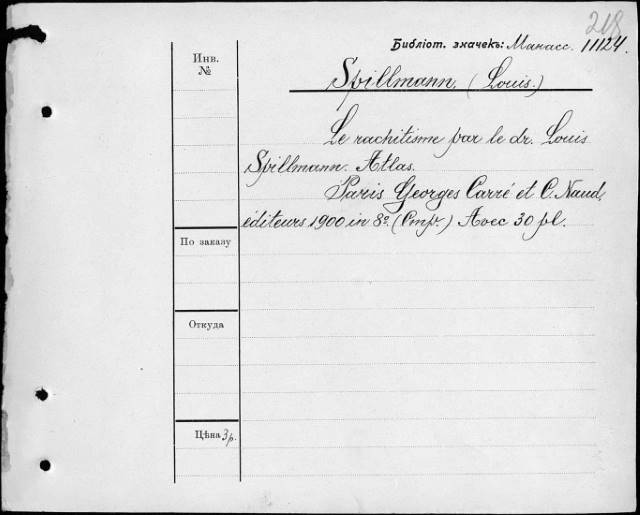 218
Библіот. значекъ: Манасс. 11124.
Инв.
№
Spillmann. (Louis.)
Le rachitisme par le dr. Louis
Spillmann. Atlas.
Paris Georges Carré et C. Naud,
éditeurs 1900 in 8º. (Стр.) Avec 30 pl.
По заказу
Откуда
Цѣна 3 р.